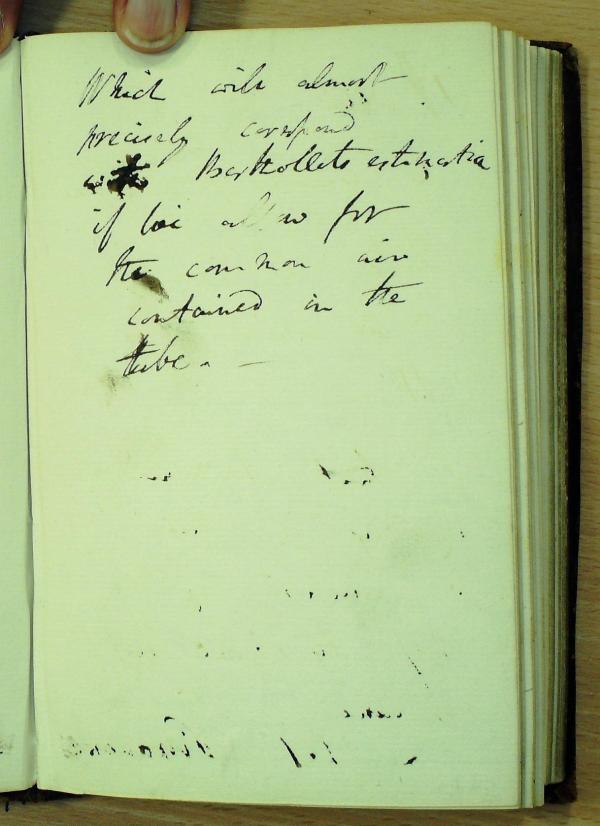 Which will almost
precisely correspond
with Berthollets estimation
if we allow for
the common air
contained in the
tube. —